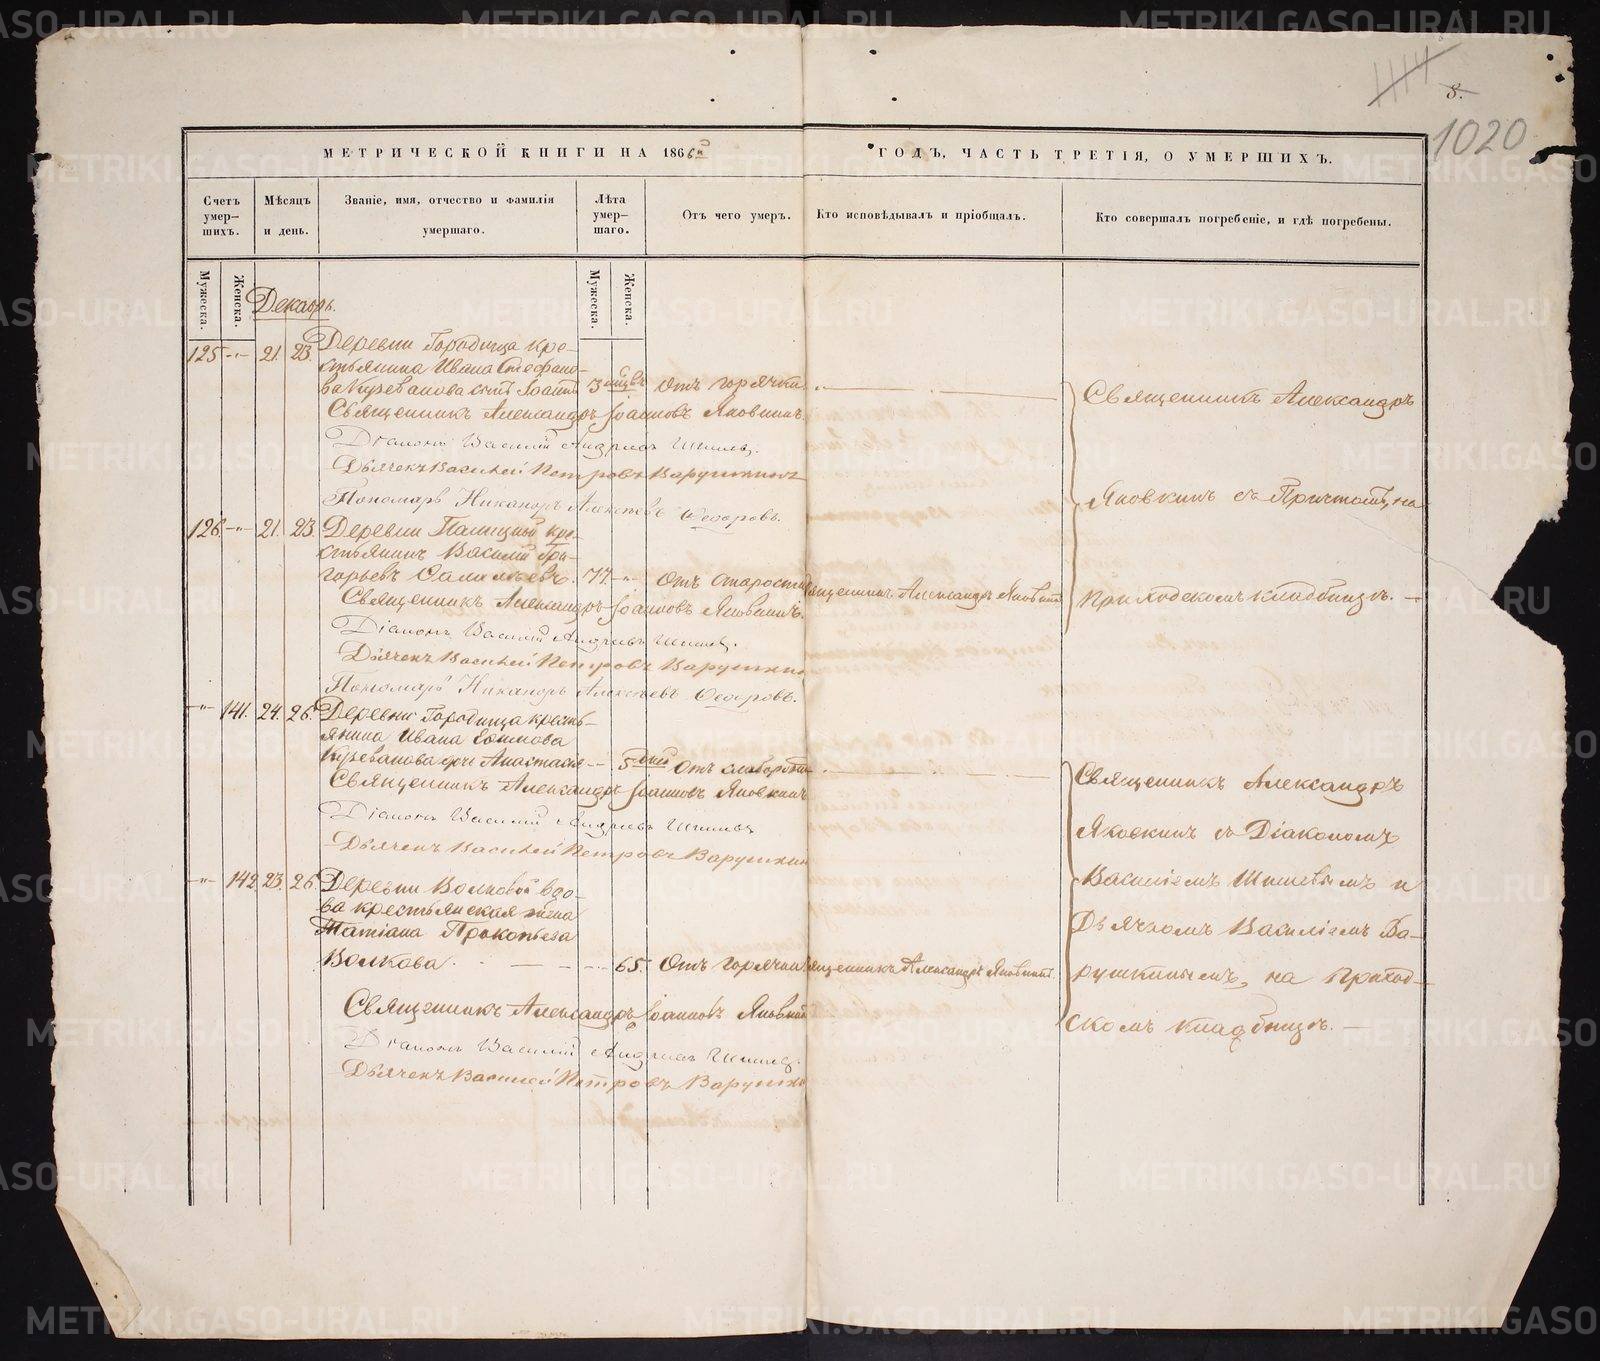 8.
1020
МЕТРИЧЕСКОЙ КНИГИ НА 1866й ГОДЪ, ЧАСТЬ ТРЕТІЯ, О УМЕРШИХЪ.
Счетъ умер-шихъ.
Мѣсяцъ и день.
Званіе, имя, отчество и фамилія умершаго.
Лѣта умер-шаго.
Отъ чего умеръ.
Кто исповѣдывалъ и пріобщалъ.
Кто совершалъ погребеніе, и гдѣ погребены.
Мужеска.
Женска.
Мужеска.
Женска.
Декабрь.
Деревни Городища кре-
125 -„- 21. 23.
стьянина Ивана Стефано-
ва сынъ Іоаннъ 3 мѣсяц. Отъ горячки
Священникъ Александръ Іоанновъ Яковкинъ.
Діаконъ Василій Андреевъ
Дьячекъ Василей Петровъ Варушкинъ
Пономарь Никаноръ Алексѣевъ Ѳедоровъ.
Священникъ Александръ
Яковкинъ съ Причтомъ, на
приходскомъ кладбищѣ. —
126. -„- 21. 23. Деревни кре-
стьянинъ Василій Гри-
горьевъ 77. -„- Отъ старости Священникъ Александръ Яковкинъ
Священникъ Александръ Іоанновъ Яковкинъ.
Діаконъ Василій Андреевъ
Дьячекъ Василей Петровъ Варушкинъ
Пономарь Никаноръ Алексѣевъ Ѳедоровъ.
-„- 141. 24. 26. Деревни Городища кресть-
янина Ивана Ефимова
дочь Анастасія -- 5 дней Отъ слабости
Священникъ Александръ Іоанновъ Яковкинъ
Діаконъ Василій Андреевъ
Дьячекъ Василей Петровъ Варушкин
Священникъ Александръ
Яковкинъ съ Діакономъ
Василіемъ Шишевымъ и
Дьячкомъ Василіемъ Ва-
рушкинымъ, на приход-
скомъ кладбищѣ. —
-„- 142. 23. 26. Деревни Волковой вдо-
ва крестьянская жена
Татіана Прокопьева
Волкова. 65. Отъ горячки Священникъ Александръ Яковкинъ.
Священникъ Александръ Іоанновъ Яковкинъ
Діаконъ Василій Андреевъ
Дьячекъ Василей Петровъ Варушкин
METRIKI.GASO-URAL.RU